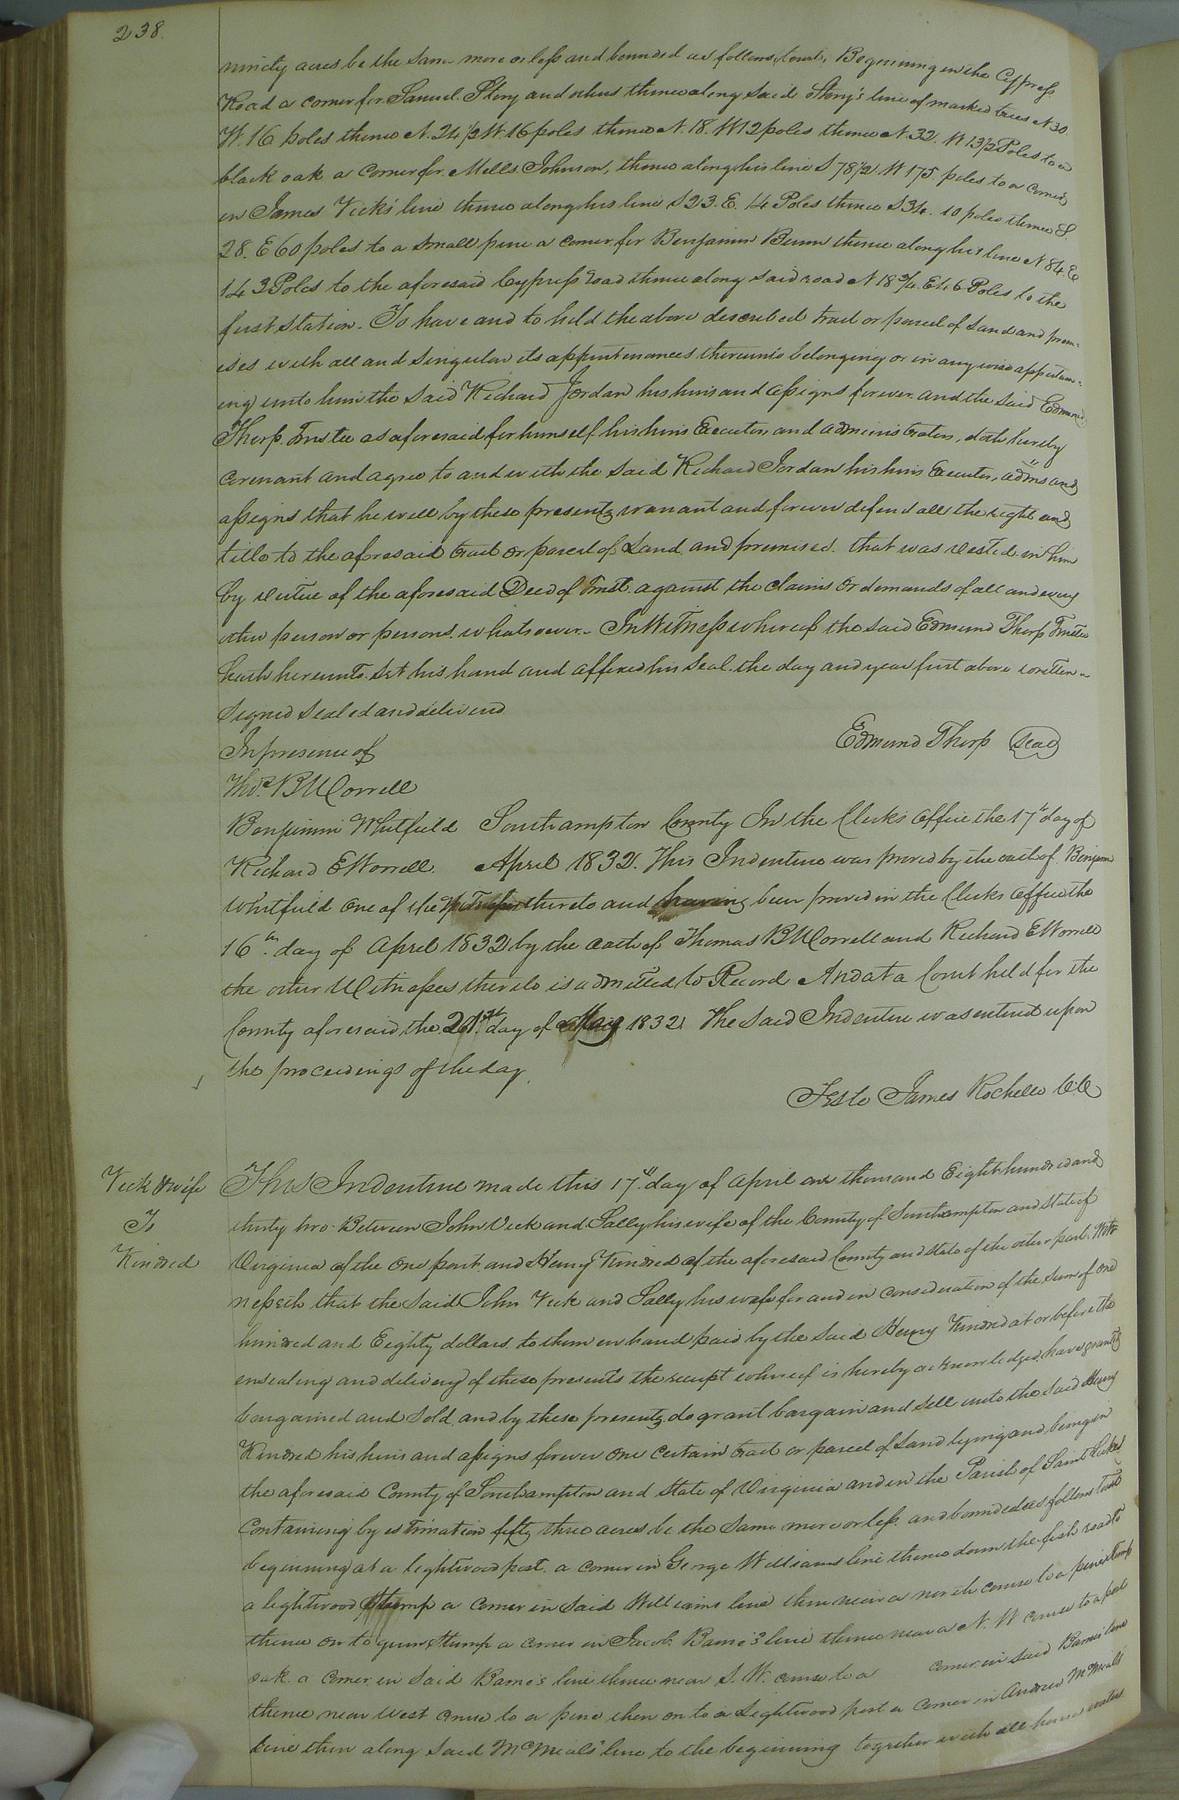 238.
ninety acres be the same more or less and bounded as follows, towit, Beginning in the Cypress
Road a corner for Samuel Story and others thence along said Story's line of marked trees N 30.
W. 16 poles thence N. 24 1/2 W. 16 poles thence N. 18. W 12 poles thence N. 32. W 13 1/2 Poles to a
black oak a corner for Mills Johnson, thence along his line S 78 1/2 W 175 poles to a corner
in James Vick's line thence along his line S 23. E. 14 Poles thence S 34. 10 poles thence S.
28. E 60 poles to a small pine a corner for Benjamin Bunn thence along his line N 84 E
143 Poles to the aforesaid Cypress road thence along said road N 18 3/4 E 46 Poles to the
first station. To have and to hold the above described tract or parcel of Land and prem-
ises with all and singular its appurtenances thereunto belonging or in any wise appertain-
ing unto him the said Richard Jordan his heirs and assigns forever and the said Edmund
Thorp Trustee as aforesaid for himself his heirs Executors and administrators, doth hereby
covenant and agree to and with the said Richard Jordan his heirs Executors, adms and
assigns that he will by these presents warrant and forever defend all the right and
title to the aforesaid tract or parcel of Land and premises. that was vested in him
by virtue of the aforesaid Deed of Trust against the claims or demands of all and every
other person or persons whatsoever. In Witness whereof the said Edmund Thorp Trustee
hath hereunto set his hand and affixed his seal the day and year first above written
Signed Sealed and delivered
In presence of
Edmund Thorp Seal
Thos. B Worrell
Benjamin Whitfield Southampton County In the Clerk's Office the 17th day of
Richard E Worrell. April 1832. This Indenture was proved by the oath of Benjamin
Whitfield one of the Witnesses thereto and having been proved in the Clerks office the
16th day of April 1832 by the oath of Thomas B Worrell and Richard E Worrell
the other Witnesses thereto is admitted to Record And at a Court held for the
County aforesaid the 21st day of May 1832 The said Indenture was entered upon
the proceedings of the day.
Teste James Rochelle C.C.
Vick & wife
To
Kindred
This Indenture made this 17th day of April one thousand Eight hundred and
thirty two Between John Vick and Sally his wife of the County of Southampton and State of
Virginia of the one part and Henry Kindred of the aforesaid County and State of the other part. Wit-
nesseth that the said John Vick and Sally his wife for and in consideration of the sum of one
hundred and Eighty dollars to them in hand paid by the said Henry Kindred at or before the
ensealing and delivery of these presents the receipt whereof is hereby acknowledged, have granted
bargained and Sold and by these presents do grant bargain and sell unto the said Henry
Kindred his heirs and assigns forever one certain tract or parcel of Land lying and being in
the aforesaid County of Southampton and State of Virginia and in the Parish of Saint Lukes
Containing by estimation fifty three acres be the same more or less and bounded as follows towit
beginning at a lightwood post a corner in George Williams line thence down the fish road to
a lightwood stump a corner in said Williams line then near a north course to a pine stump
thence on to gum stump a corner in Jacob Barnes line thence near a N. W course to a post
oak a corner in said Barnes line thence near S. W. course to a corner in said Barnes line
thence near West course to a pine then on to a Lightwood post a corner in Andrew McMeals
line then along said McMeals line to the beginning together with all houses waters